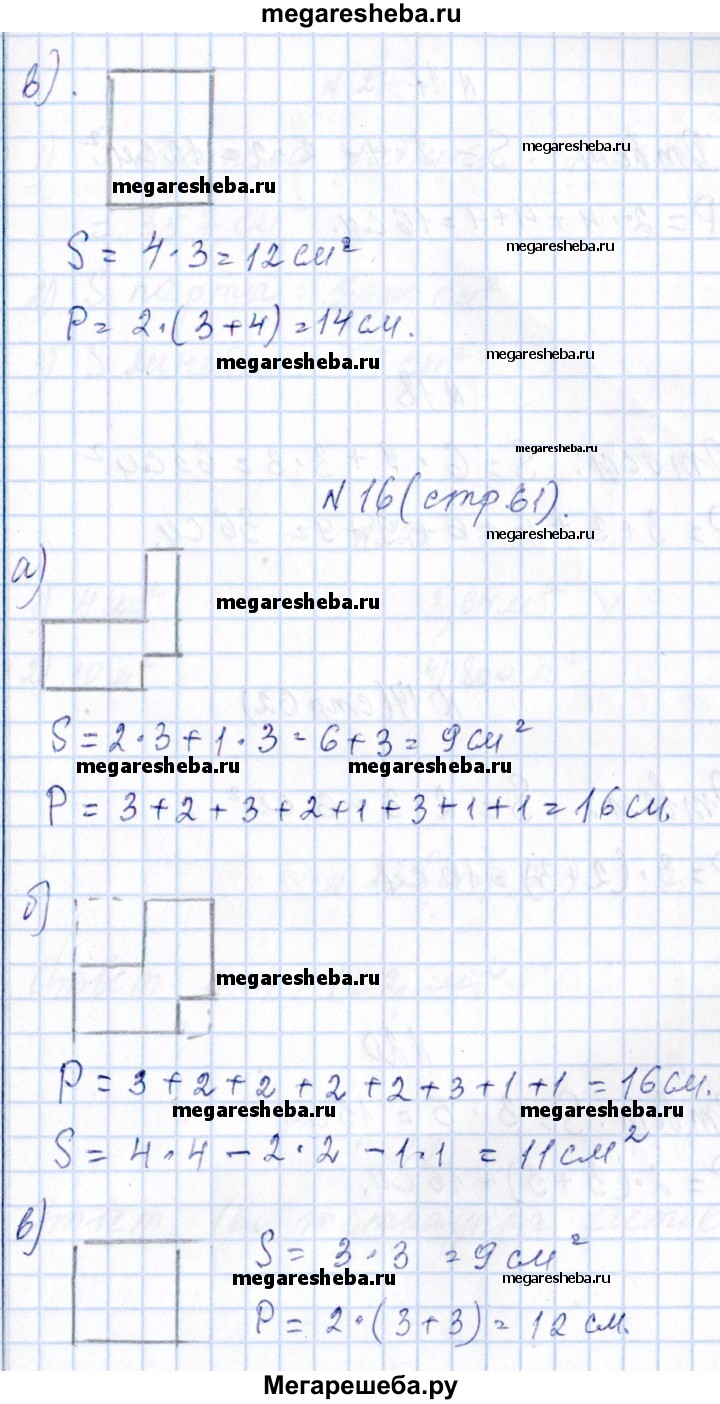 megaresheba.ru
в).
megaresheba.ru
megaresheba.ru
S = 4·3=12см²
megaresheba.ru
P= 2·(3+4)=14см.
megaresheba.ru
megaresheba.ru
megaresheba.ru
N 16(стр.61).
megaresheba.ru
а)
megaresheba.ru
S=2·3+1·3=6+3= 9см²
megaresheba.ru
megaresheba.ru
P = 3+2+3+2+1+3+1+1=16см.
б)
megaresheba.ru
P = 3+2+2+2+2+3+1+1 =16см.
megaresheba.ru
megaresheba.ru
S = 4·4-2·2-1·1 = 11см²
в)
S = 3·3 =9см²
megaresheba.ru
megaresheba.ru
P = 2·(3+3)= 12 см.
Мегарешеба.ру